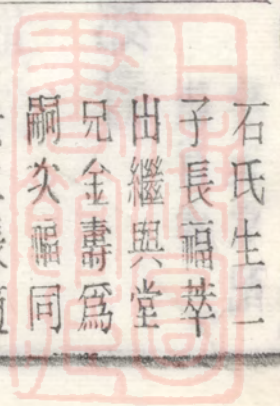 石氏生二
子長福萃
出繼與堂
兄金壽爲
嗣次福同